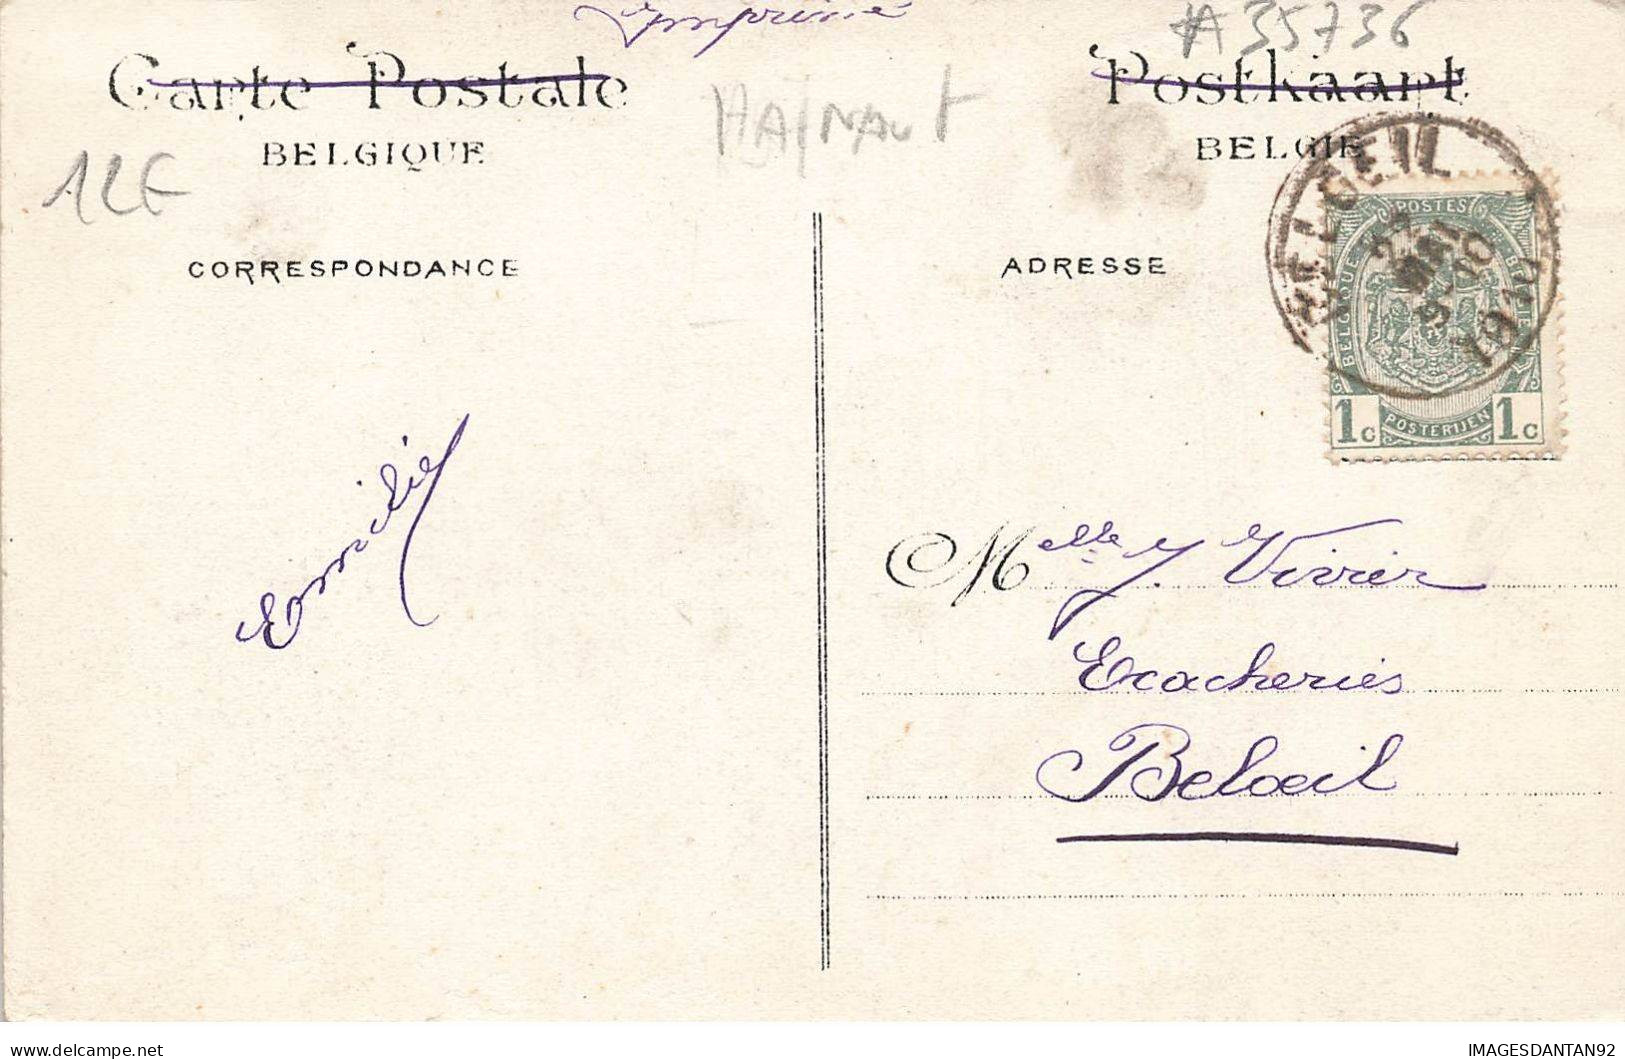 Imprimé
#35736
Carte Postale
BELGIQUE
HAINAUT
Postkaart
BELGIE
12E
CORRESPONDANCE
ADRESSE
BELOEIL
1910
POSTES
BELGIQUE
BELGIË
1c POSTERIJEN 1c
Emilie
Melle J. Vivier
Ecacheries
Belœil
delcampe.net
IMAGESDANTAN92